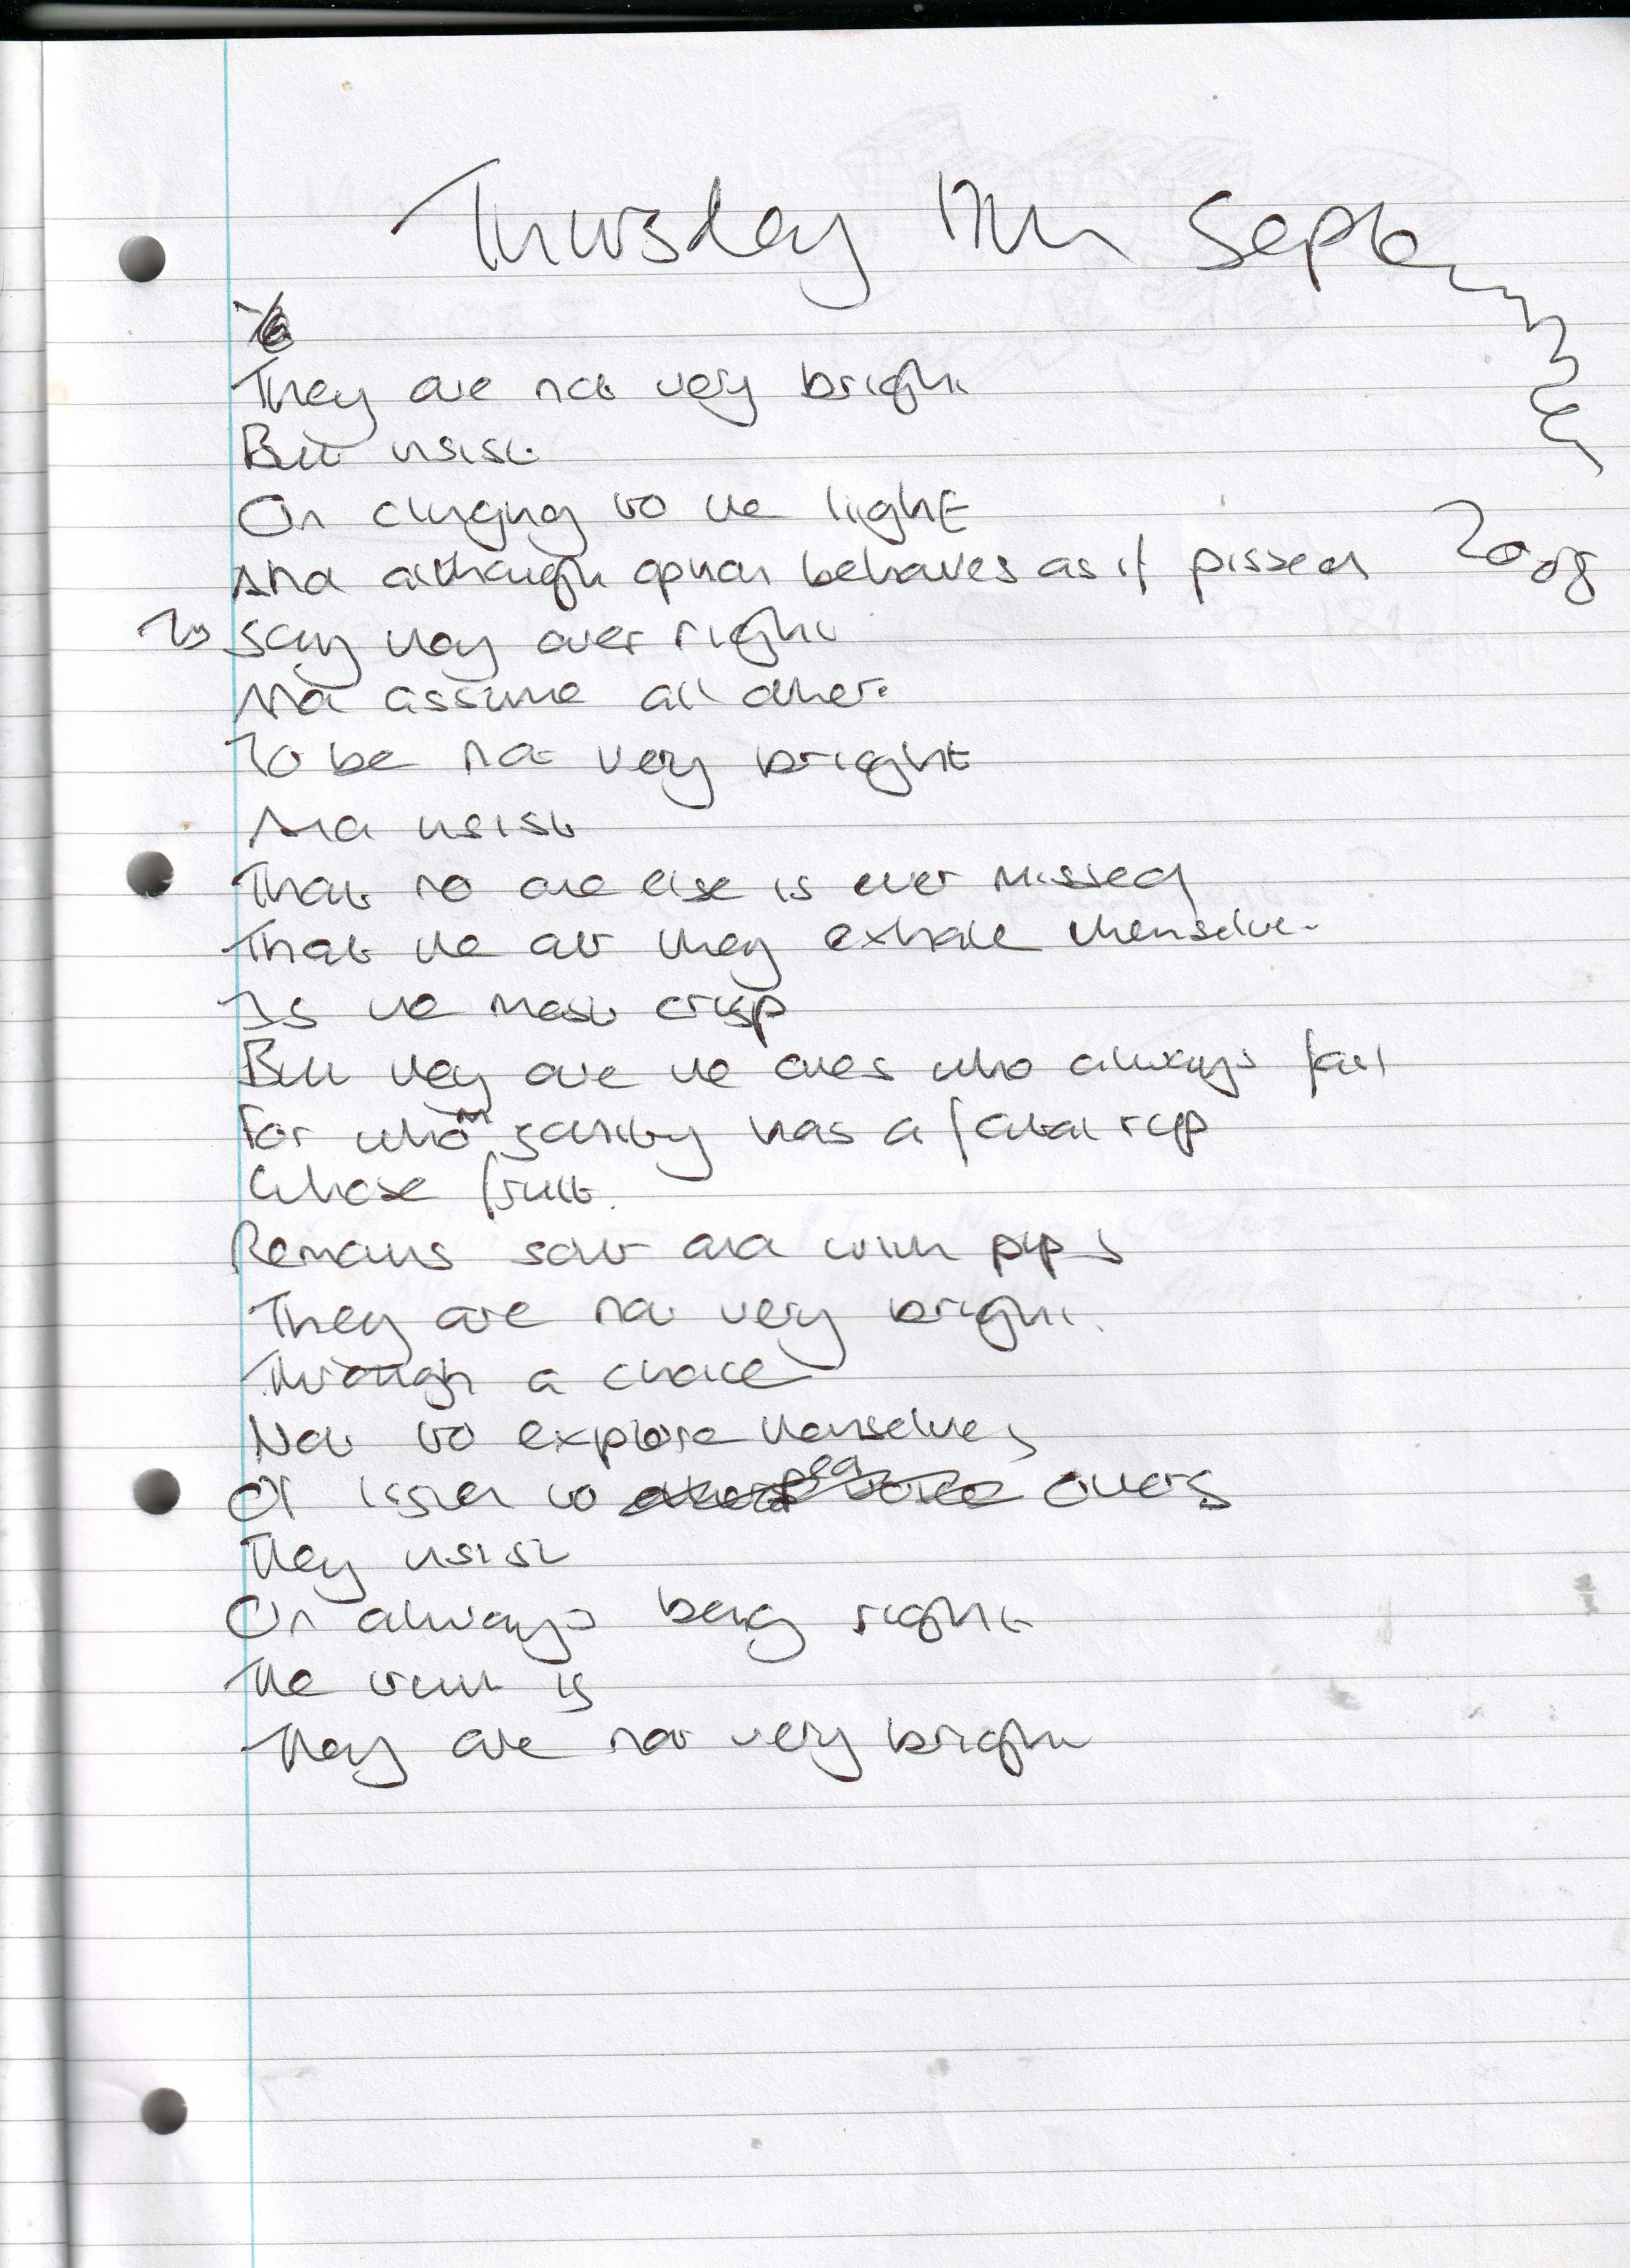 Thursday 17th September
2008
They are not very bright
But insist
On clinging to the light
And although opinion behaves as if pissed
To say they over right
And assume all others
To be not very bright
And insist
That no one else is ever missed
That the air they exhale themselves
Is the most crisp
But they are the ones who always fail
For whom sanity has a fatal rip
Whose fruit
Remains sour and with pips
They are not very bright.
Through a choice
Not to explore themselves
Or listen to others
They insist
On always being right
The truth is
They are not very bright